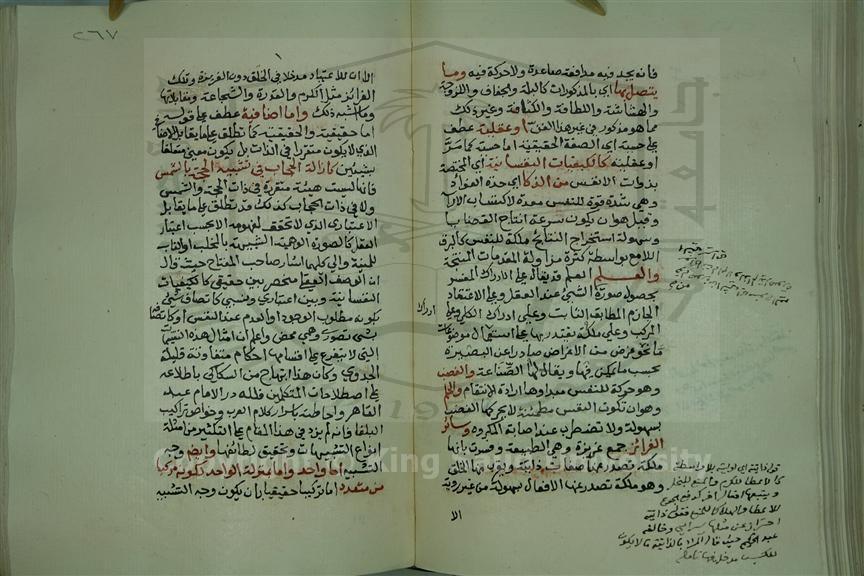 فانه يجد فيه مدافعة صاعدة ولا حركة فيه وما
يتصل بها اي بالمذكورات كالبلة والجفاف واللزوجة
والهشاشة واللطافة والكثافة وغير ذلك
مما هو مذكور في غير هذا الفن او عقلية عطف
على حسية اي الصفة الحقيقية اما حسية كما مر
او عقلية كالكيفيات النفسانية اي المختصة
بذوات الانفس من الذكا اي حدة الفواد
وهي شدة قوة للنفس معدة لاكتساب الآرا
وقيل هو ان يكون سرعة انتاج القضايا
وسهولة استخراج النتائج ملكة للنفس كالبرق
اللامع بواسطة كثرة مزاولة المقدمات المنتجة
والعلم العلم قد يقال على الادراك المفسر
بحصول صورة الشي عند العقل وعلى الاعتقاد
الجازم المطابق الثابت وعلى ادراك الكلي وعلى
ادراك
المركب وعلى ملكة يقتدر بها على استعمال موضوعات
ما نحو غرض من الاغراض صادرا عن البصيرة
بحسب ما يمكن فيها ويقال لها الصناعة والغضب
وهو حركة للنفس مبداوها ارادة الانتقام والحلم
وهو ان تكون النفس مطمئنة لا يحركها الغضب
بسهولة ولا تضطرب عند اصابة المكروه وسائر
الغرائز جمع غريزة وهي الطبيعة وفسرت بانها
ملكة تصدر عنها صفات ذاتية ويقرب منها الخلق
وهو ملكة تصدر عنها الافعال بسهولة من غير روية
الا
٢٦٧
الا ان للاعتياد مدخلا في الخلق دون الغريزة وتلك
الغرائز مثل الكرم والقدرة والشجاعة ومقابلاتها
وما اشبه ذلك واما اضافية عطف على قوله
اما حقيقية والحقيقية كما تطلق على ما يقابل الاضافي
الذي لا يكون متقررا في الذات بل يكون معنى متعلقا
بشيئين كازالة الحجاب في تشبيه الحجة بالشمس
فانها ليست هيئة متقررة في ذات الحجة والشمس
ولا في ذات الحجاب كذلك قد تطلق على ما يقابل
الاعتباري الذي لا تحقق لمفهومه الا بحسب اعتبار
العقل كالصورة الوهمية الشبيهة بالمخلب او الناب
للمنية والى كليهما اشار صاحب المفتاح حيث قال
ان الوصف العقلي منحصر بين حقيقي كالكيفيات
النفسانية وبين اعتباري ونسبي كاتصاف الشي
بكونه مطلوب الوجود او العدم عند النفس او كاتصافه
بشي تصوري وهمي محض واعلم ان امثال هذه التقسيمات
التي لا يتفرع على اقسامها احكام متفاوتة قليلة
الجدوى وكان هذا ابتهاج من السكاكي باطلاعه
على اصطلاحات المتكلمين فلله در الامام عبد
القاهر واحاطته باسرار كلام العرب وخواص تراكيب
البلغا فانه لم يزد في هذا المقام على التكثير من امثلة
انواع التشبيهات وتحقيق لطائفها وايضا وجه
التشبيه اما واحد واما بمنزلة الواحد لكونه مركبا
من متعدد اما تركيبا حقيقيا بان يكون وجه التشبيه